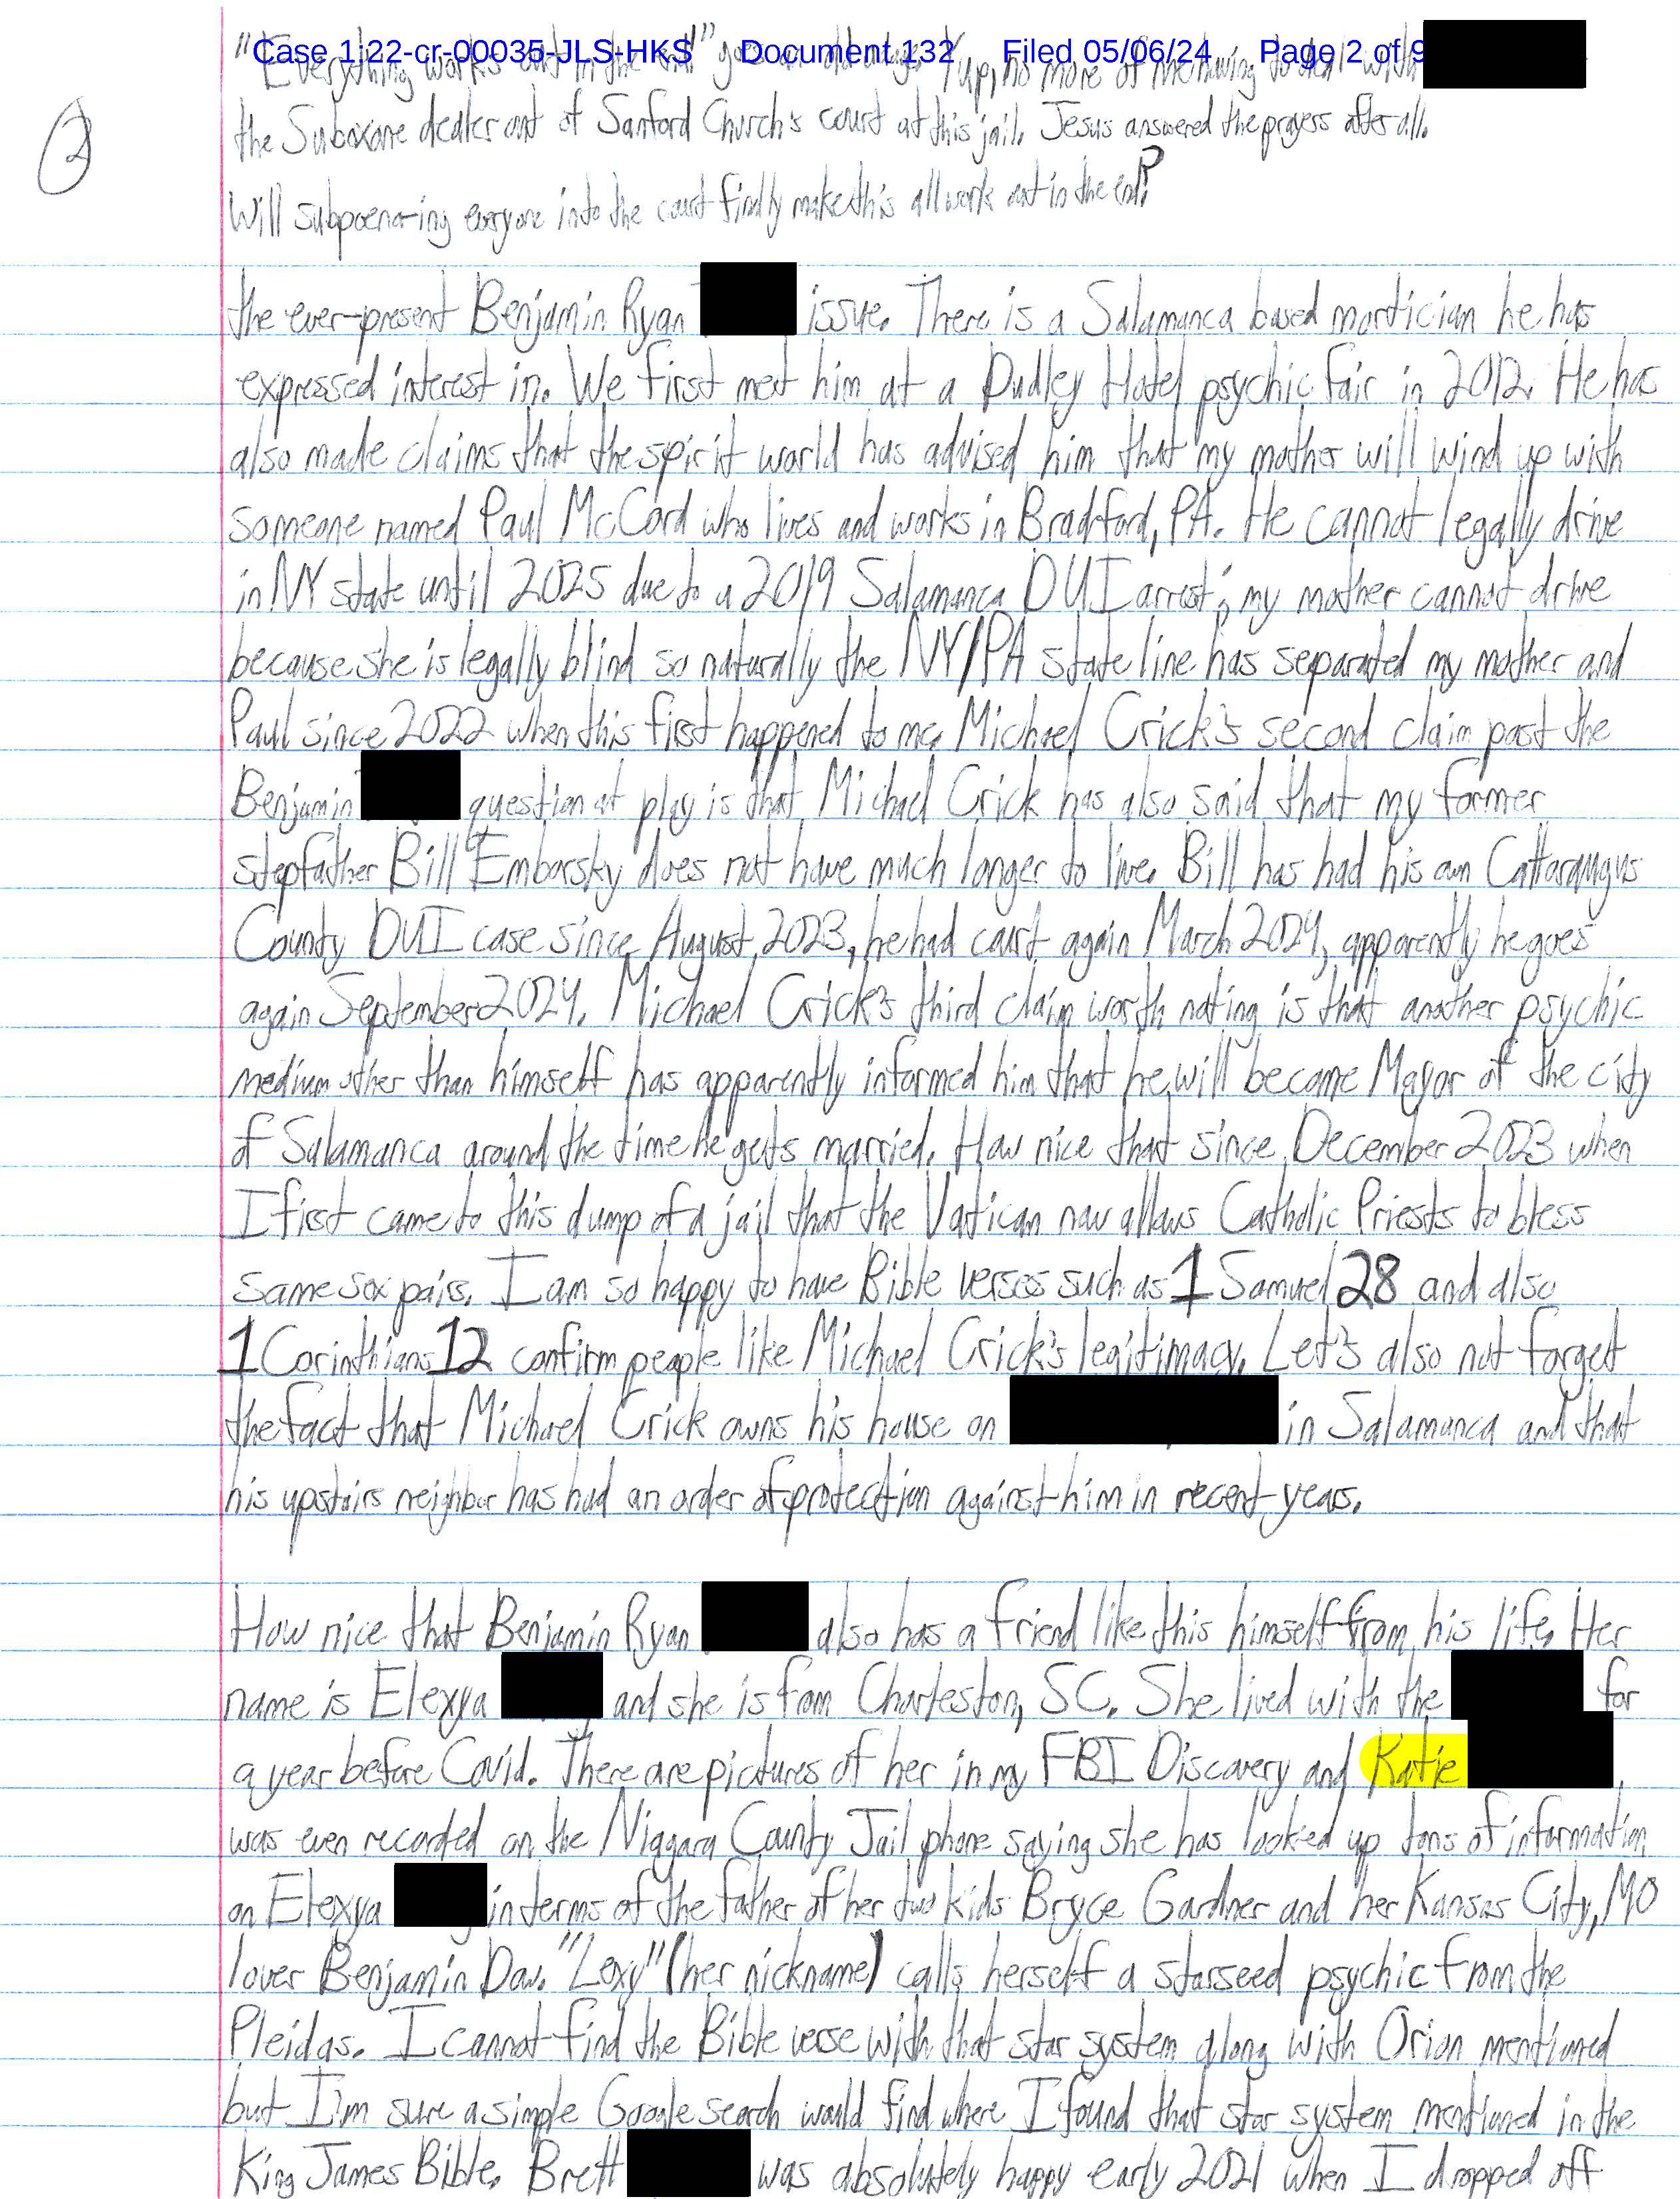 Case 1:22-cr-00035-JLS-HKS Document 132 Filed 05/06/24 Page 2 of 9
"Everything works out in the end" goes an old adage. Yup, no more of me having to deal with
2
the Suboxone dealer out of Sanford Church's court at this jail. Jesus answered the prayers after all.
Will subpoena-ing everyone into the court finally make this all work out in the end?
the ever-present Benjamin Ryan issue. There is a Salamanca based mortician he has
expressed interest in. We first met him at a Dudley Hotel psychic fair in 2012. He has
also made claims that the spirit world has advised him that my mother will wind up with
someone named Paul McCord who lives and works in Bradford, PA. He cannot legally drive
in NY state until 2025 due to a 2019 Salamanca DUI arrest; my mother cannot drive
because she is legally blind so naturally the NY/PA state line has separated my mother and
Paul since 2022 when this first happened to me. Michael Crick's second claim past the
Benjamin question at play is that Michael Crick has also said that my former
stepfather Bill Emborsky does not have much longer to live. Bill has had his own Cattaraugus
County DUI case since August 2023, he had court again March 2024, apparently he goes
again September 2024. Michael Crick's third claim worth noting is that another psychic
medium other than himself has apparently informed him that he will become Mayor of the city
of Salamanca around the time he gets married. How nice that since December 2023 when
I first came to this dump of a jail that the Vatican now allows Catholic Priests to bless
same sex pairs. I am so happy to have Bible verses such as 1 Samuel 28 and also
1 Corinthians 12 confirm people like Michael Crick's legitimacy. Let's also not forget
the fact that Michael Crick owns his house on in Salamanca and that
his upstairs neighbor has had an order of protection against him in recent years.
How nice that Benjamin Ryan also has a friend like this himself from his life. Her
name is Elexya and she is from Charleston, SC. She lived with the for
a year before Covid. There are pictures of her in my FBI Discovery and Katie ,
was even recorded on the Niagara County Jail phone saying she has looked up tons of information
on Elexya in terms of the father of her two kids Bryce Gardner and her Kansas City, MO
lover Benjamin Dow. "Lexy" (her nickname) calls herself a starseed psychic from the
Pleidas. I cannot find the Bible verse with that star system along with Orion mentioned
but I'm sure a simple Google search would find where I found that star system mentioned in the
King James Bible. Brett was absolutely happy early 2021 when I dropped off